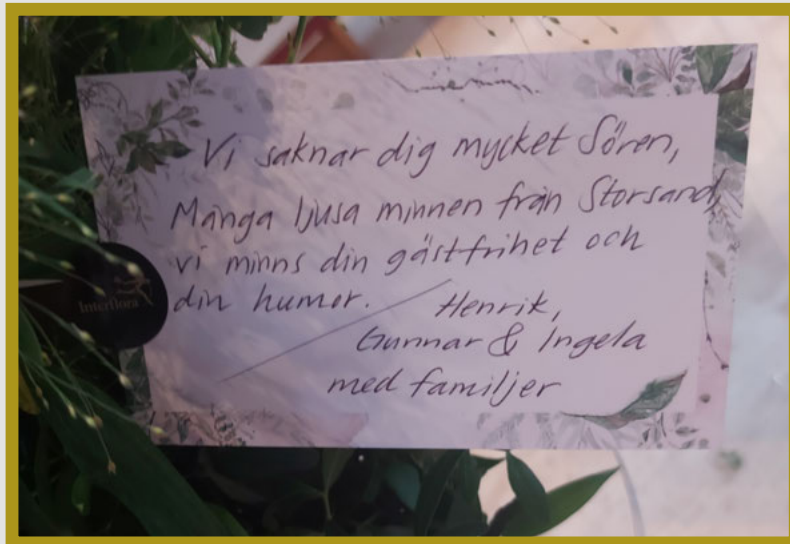 Vi saknar dig mycket Sören,
Många ljusa minnen från Storsand,
vi minns din gästfrihet och
din humor.
Henrik,
Gunnar & Ingela
med familjer
Interflora